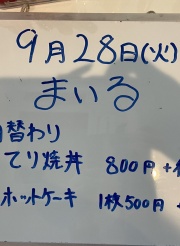 9月28日(火)
まいる
替わり
てり焼丼 800円 +
ホットケーキ 1枚500円